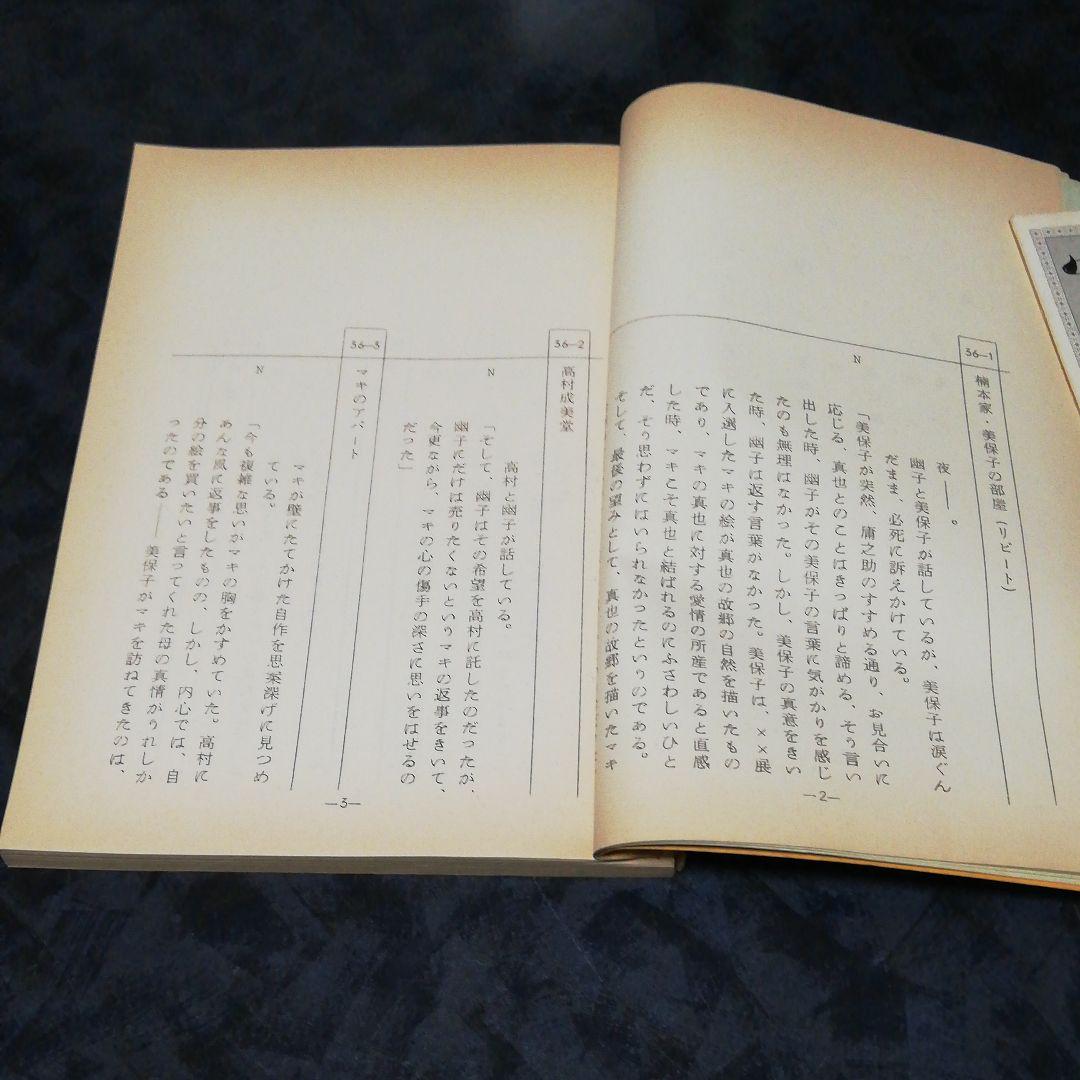 36—1
楠本家・美保子の部屋(リピート)
夜——。
幽子と美保子が話しているが、美保子は涙ぐん
だまま、必死に訴えかけている。
N
「美保子が突然、庸之助のすすめる通り、お見合いに
応じる、真也とのことはきっぱりと諦める、そう言い
出した時、幽子がその美保子の言葉に気がかりを感じ
たのも無理はなかった。しかし、美保子の真意をきい
た時、幽子は返す言葉がなかった。美保子は、××展
に入選したマキの絵が真也の故郷の自然を描いたもの
であり、マキの真也に対する愛情の所産であると直感
した時、マキこそ真也と結ばれるのにふさわしいひと
だ、そう思わずにはいられなかったというのである。
そして、最後の望みとして、真也の故郷を描いたマキ
—2—
36—2
高村成美堂
高村と幽子が話している。
N
「そして、幽子はその希望を高村に託したのだったが、
幽子にだけは売りたくないというマキの返事をきいて、
今更ながら、マキの心の傷手の深さに思いをはせるの
だった」
36—3
マキのアパート
マキが壁にたてかけた自作を思案深げに見つめ
ている。
N
「今も複雑な思いがマキの胸をかすめていた。高村に
あんな風に返事をしたものの、しかし、内心では、自
分の絵を買いたいと言ってくれた母の真情がうれしか
ったのである——美保子がマキを訪ねてきたのは、
—3—